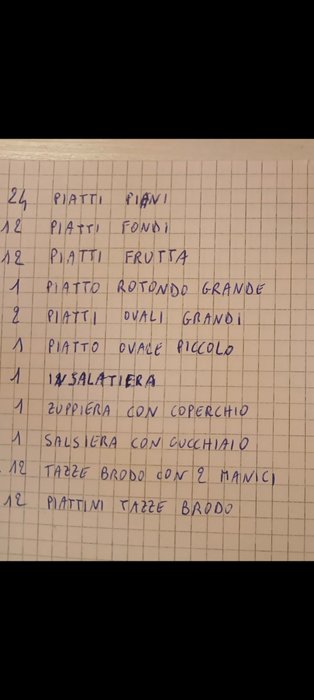 24 PIATTI PIANI
12 PIATTI FONDI
12 PIATTI FRUTTA
1 PIATTO ROTONDO GRANDE
2 PIATTI OVALI GRANDI
1 PIATTO OVALE PICCOLO
1 INSALATIERA
1 ZUPPIERA CON COPERCHIO
1 SALSIERA CON CUCCHIAIO
12 TAZZE BRODO CON 2 MANICI
12 PIATTINI TAZZE BRODO